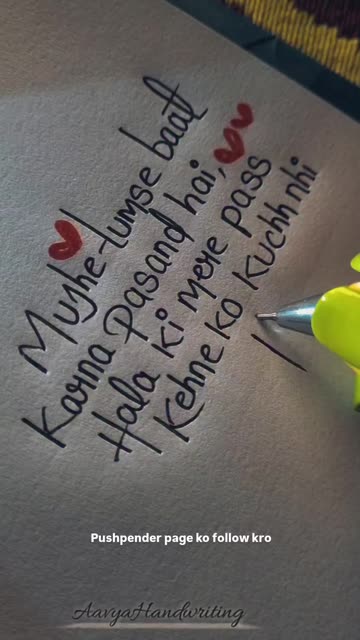 Mujhe tumse baat
Karna Pasand hai,
Hala ki mere pass
Kehne ko kuchh nhi
Pushpender page ko follow kro
AavyaHandwriting